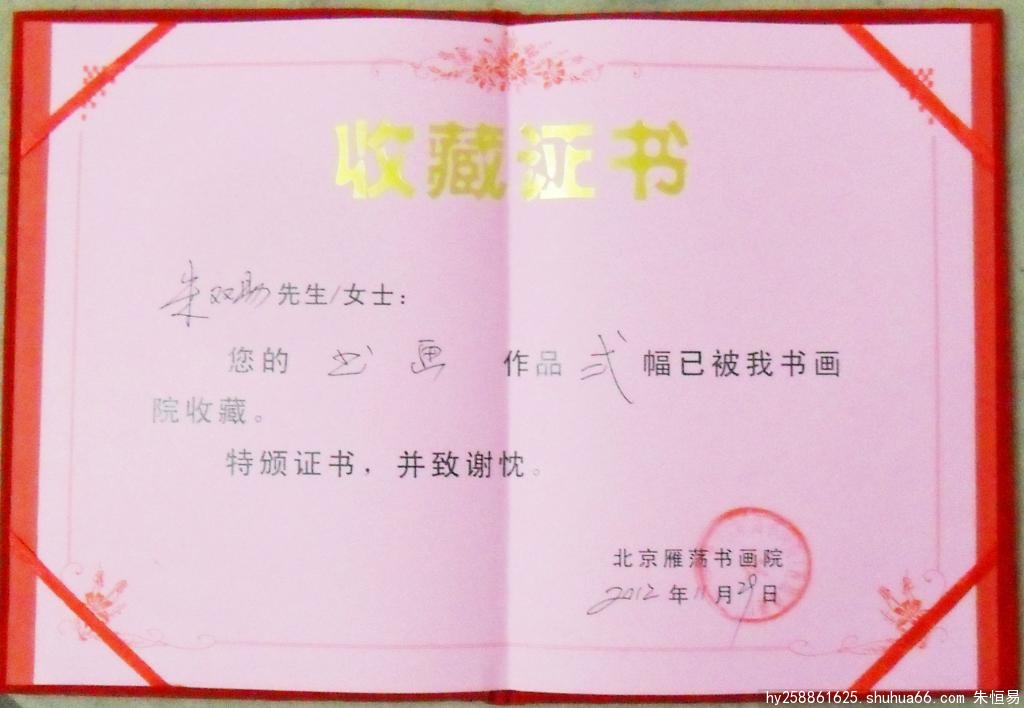 收藏证书
朱双助先生/女士：
您的 书画 作品 弍 幅已被我书画
院收藏。
特颁证书，并致谢忱。
北京雁荡书画院
2012年11月29日
hy258861625.shuhua66.com 朱恒易